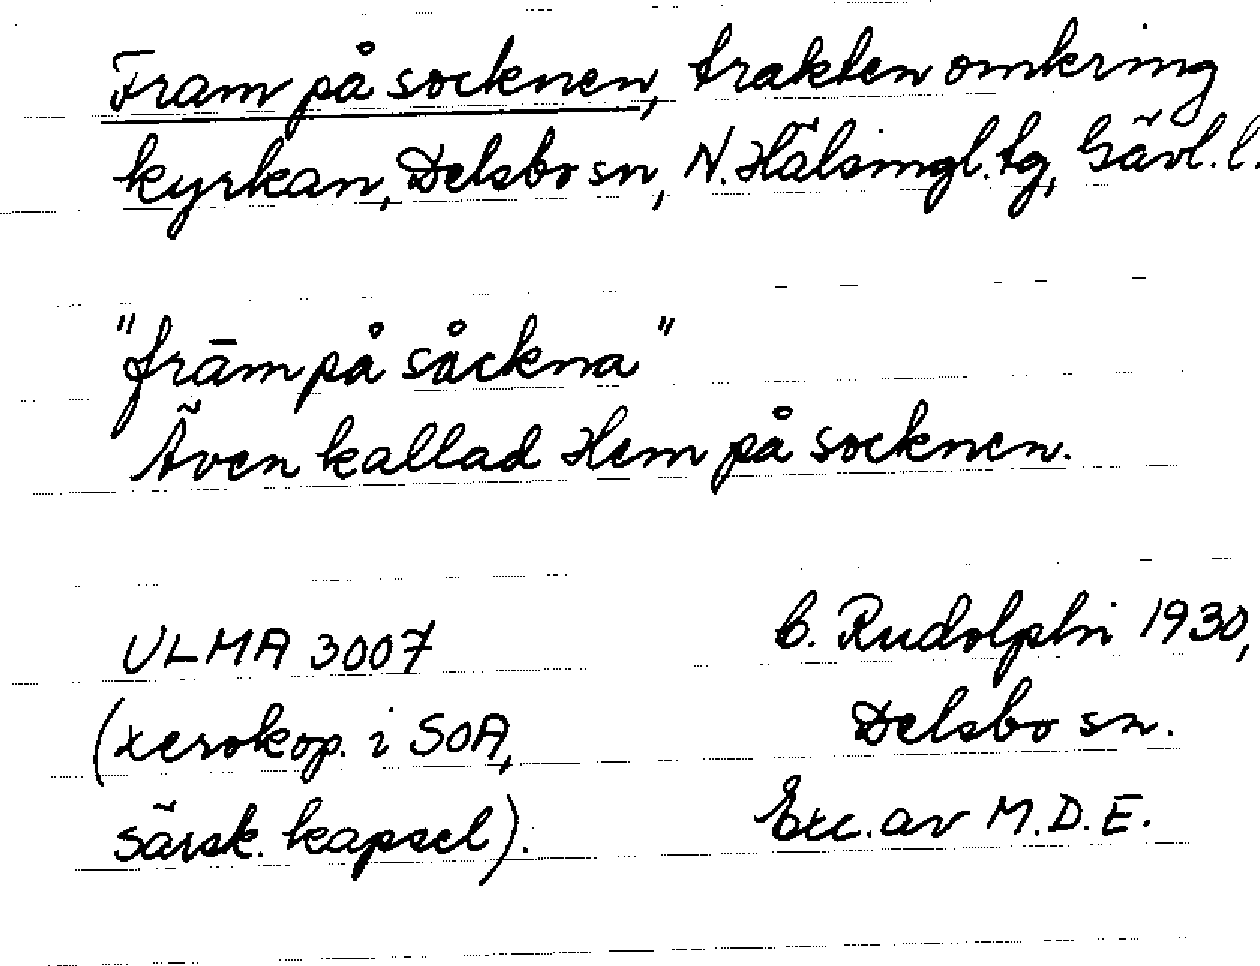 Fram på socknen, trakten omkring
kyrkan, Delsbo sn, N. Hälsingl. tg, Gävl. l.
"främ på såckna"
Även kallad Hem på socknen.
ULMA 3007
(xerokop. i SOA,
särsk. kapsel).
C. Rudolphi 1930,
Delsbo sn.
Exc. av M.D.E.